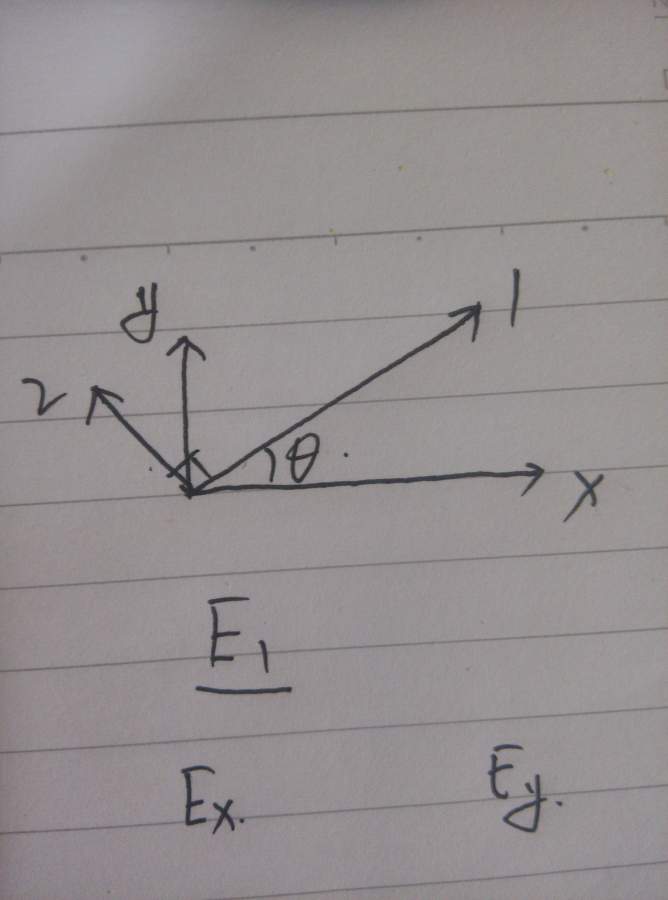 y 1
2
θ.
x
E₁
Eₓ. E_y.